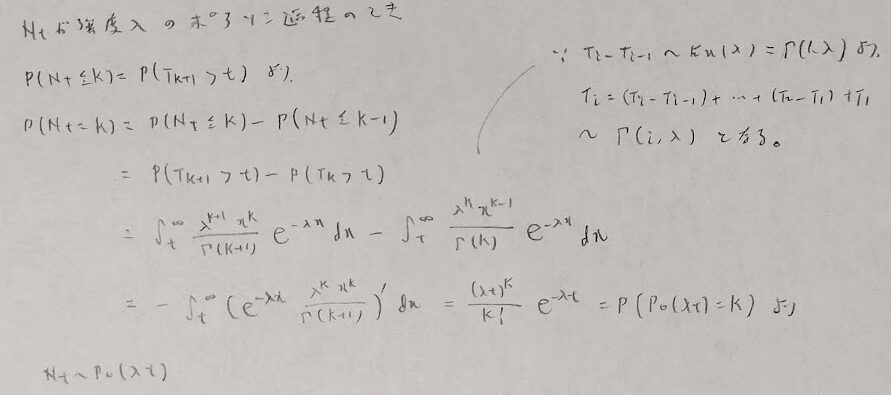 Nt が強度λのポアソン過程のとき
P(Nt ≦ k) = P(Tk+1 > t) より、
P(Nt = k) = P(Nt ≦ k) - P(Nt ≦ k-1)
= P(Tk+1 > t) - P(Tk > t)
= ∫t^∞ λ^{k+1} x^k / Γ(k+1) e^{-λx} dx - ∫t^∞ λ^k x^{k-1} / Γ(k) e^{-λx} dx
= - ∫t^∞ (e^{-λx} λ^k x^k / Γ(k+1))' dx = (λt)^k / k! e^{-λt} = P(Po(λt) = k) より
Nt ~ Po(λt)
∵ Ti - Ti-1 ~ Ex(λ) = Γ(1, λ) より、
Ti = (Ti - Ti-1) + … + (T2 - T1) + T1
~ Γ(i, λ) となる。